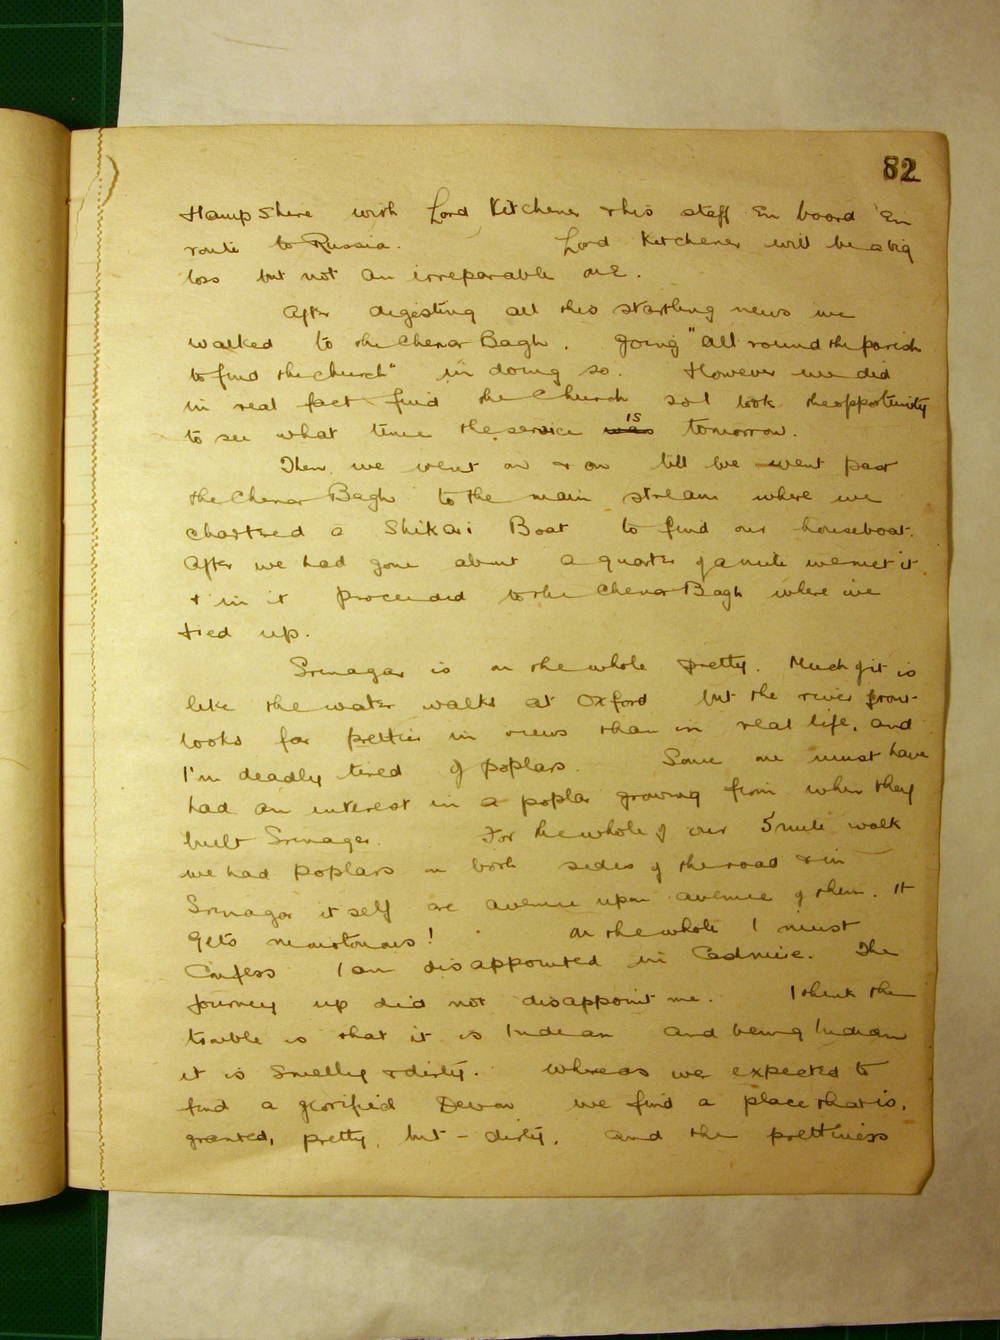 82
Hampshire with Lord Kitchener & his staff En board En
route to Russia. Lord Kitchener will be a big
loss but not an irreparable one.
After digesting all this startling news we
walked to the Chenar Bagh. Going "all round the parish
to find the church" in doing so. However we did
in real fact find the Church so I took the opportunity
to see what time the service was is tomorrow.
Then we went on & on till we went past
the Chenar Bagh to the main stream where we
chartred a Shikari Boat to find our houseboat.
After we had gone about a quarter of a mile we met it
& in it proceeded to the Chenar Bagh where we
tied up.
Srinagar is on the whole pretty. Much of it is
like the water walks at Oxford but the river front
looks far prettier in views than in real life, and
I'm deadly tired of poplars. Some one must have
had an interest in a poplar growing firm when they
built Srinager. For the whole of our 5 mile walk
we had poplars on both sides of the road & in
Srinagar it self are avenue upon avenue of them. It
gets monotonous! On the whole I must
Confess I am disappointed in Cashmire. The
journey up did not disappoint me. I think the
trouble is that it is Indian and being Indian
it is Smelly & dirty. Whereas we expected to
find a glorified Devon we find a place that is,
granted, pretty, but - dirty, and the prettiness